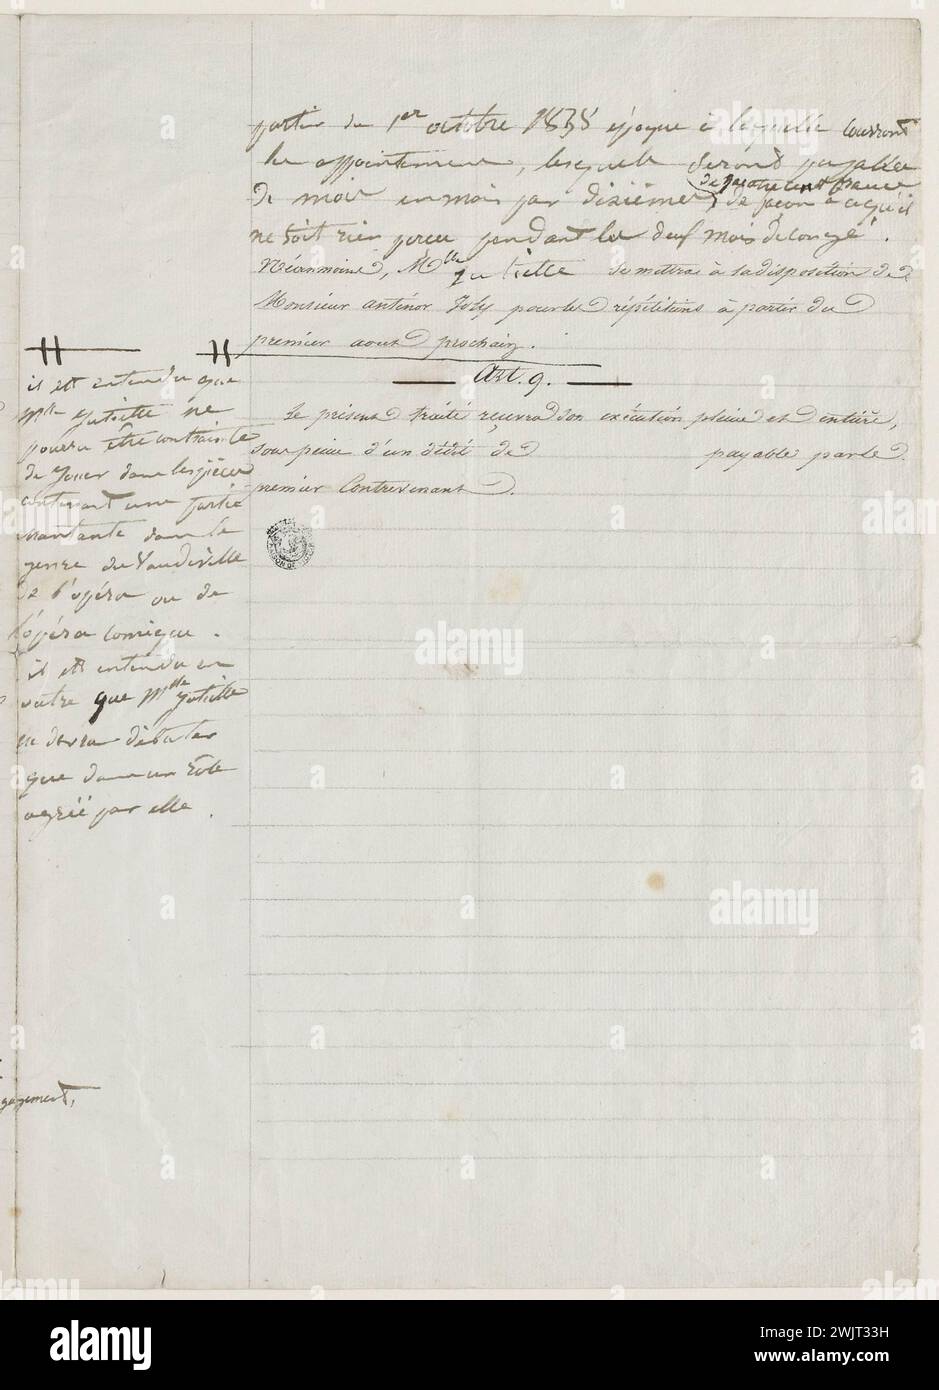 partir du 1er octobre 1838 époque à laquelle courront
les appointements, lesquels seront payables
de quatre cent francs
de mois en mois par dixièmes, de façon à ce qu'il
ne soit rien perçu pendant les deux mois de congé.
Néanmoins, Mlle Juliette se mettra à la disposition de
Monsieur anténor Joly pour les répétitions à partir du
premier aout prochain.
Art. 9.
Le présent traité recevra son exécution pleine et entière,
sous peine d'un dédit de payable par le
premier Contrevenant.
il est entendu que
Mlle Juliette ne
pourra être contrainte
de Jouer dans les pièces
contenant une partie
chantante dans le
genre du Vaudeville
de l'opéra ou de
l'opéra comique.
il est entendu en
outre que Mlle Juliette
ne devra débuter
que dans un rôle
agréé par elle.
gagement,
alamy
www.alamy.com
Image ID: 2WJT33H